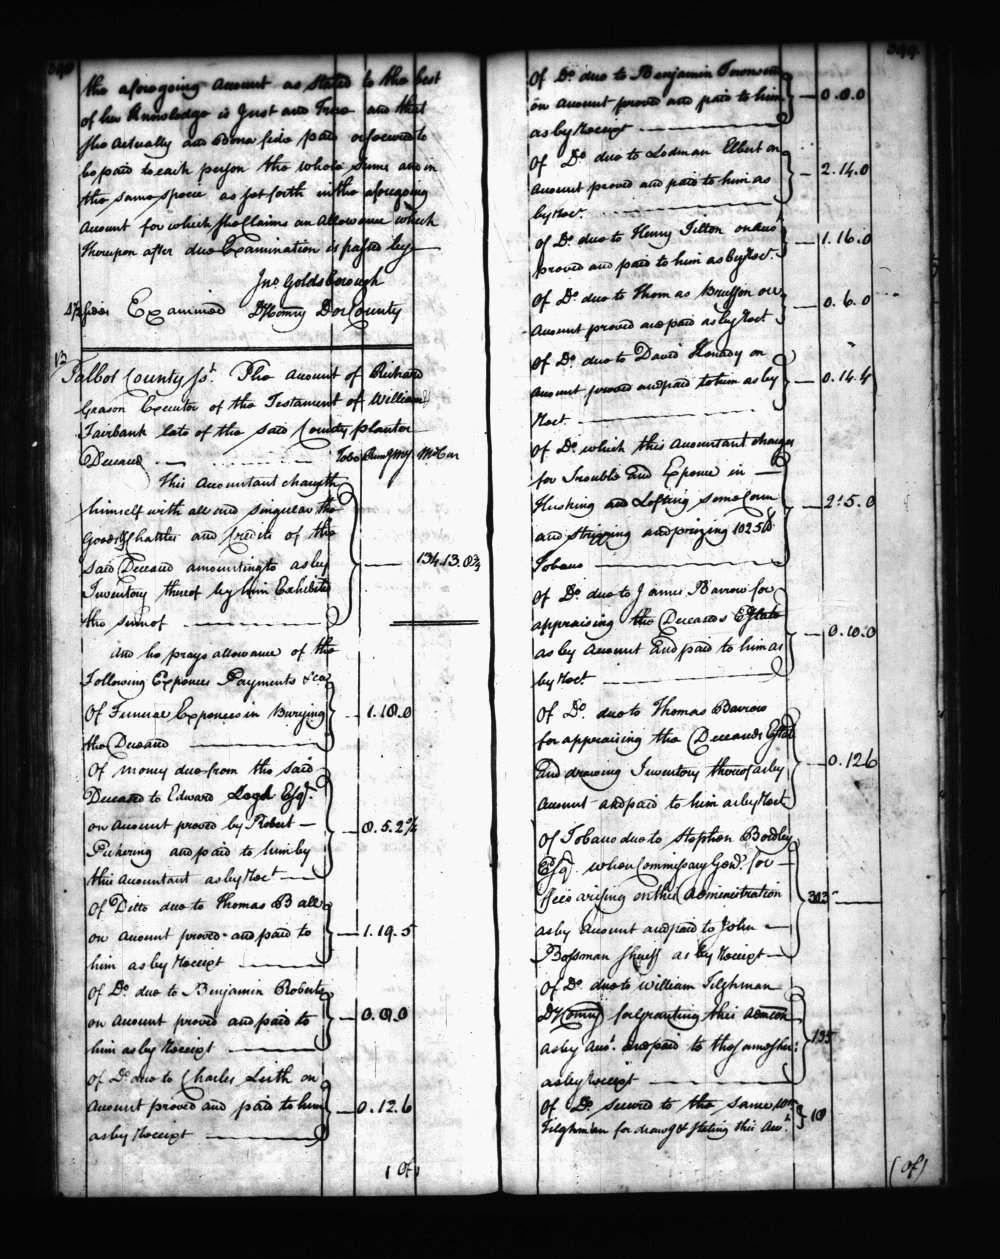 the aforegoing Account as Stated to the best
of her Knowledge is Just and True and that
she actually and Bona fide paid or secured to
be paid to each person the whole Sums and in
the same specie as set forth in the aforegoing
Account for which she Claims an Allowance which
thereupon after due Examination is passed by
Jno. Goldsborough
Examined DComry Dor County
Talbot County Sst. The Account of Richard
Grason Executor of the Testament of William
Fairbank late of the said County planter
Deceased Tobo
This Accountant chargeth
himself with all and singular the
Goods Chattles and Credits of the
said Deceased amounting to as by
Inventory thereof by him Exhibited
the sum of 134.13.0¾
And he prays allowance of the
Following Expences Payments &ca
Of Funeral Expences in Burying
the Deceased 1.10.0
Of money due from the said
Deceased to Edward Esqr.
on Account proved by Robert
Pickering and paid to him by
this Accountant as by Rect
Of Ditto due to Thomas Ball
on Account proved and paid to
him as by Receipt 1.19.5
Of Do. due to Benjamin Roberts
on Account proved and paid to
him as by Receipt
Of Do. due to Charles Leith on
Account proved and paid to him
as by Receipt 0.12.6
(Of)
344
Of Do. due to Benjamin
on Account proved and paid to him
as by Receipt
Of Do. due to Lodman Elbert on
Account proved and paid to him as
by Rect. 2.14.0
Of Do. due to Henry Tilton on
proved and paid to him as by Rect. 1.16.0
Of Do. due to Thomas on
Account proved and paid as by Rect 0.6.0
Of Do. due to David on
Account proved and paid to him as by
Rect. 0.14.4
Of Do. which this Accountant charges
for Trouble and Expence in
Husking and Lofting some Corn
and Stripping and prizing 1025 lb
Tobacco 2.5.0
Of Do. due to James Barrow for
appraising the Deceaseds Estate
as by Account and paid to him as
by Rect 0.10.0
Of Do. due to Thomas Barrow
for appraising the Deceaseds Estate
and drawing Inventory thereof as by
Account and paid to him as by Rect 0.12.6
Of Tobacco due to Stephen Bordley
Esqr. when Commissary Genl. for
Fees arising on this Administration
as by Account and paid to John
Bozman Sheriff as by Receipt 303
Of Do. due to William Tilghman
DComry for Granting this Admcon
as by Acct. and paid to
as by Receipt 135
Of Do. secured to the same Wm
Tilghman for drawg & stating this Acct. 10
(Of)